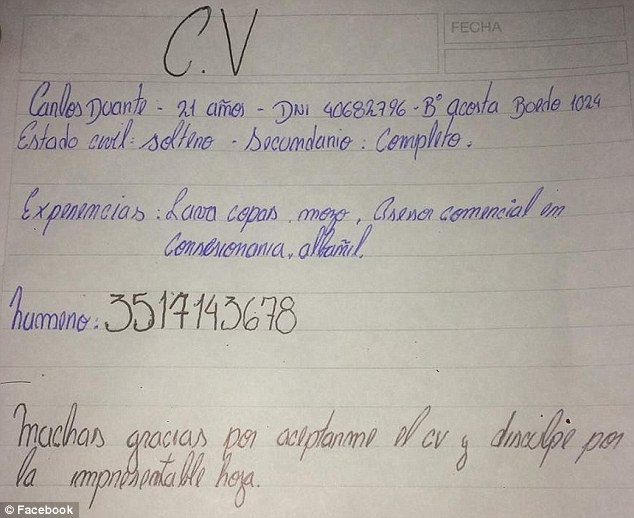 C.V
FECHA
Carlos Duarte - 21 años - DNI 40682796 - Bº Acosta Boedo 1024
Estado civil: soltero - Secundario: Completo.
Experiencias: Lava copas, mozo, Asesor comercial en
Consesionaria, albañil.
humero: 3517143678
muchas gracias por aceptarme el cv y disculpe por
la impresentable hoja.
© Facebook